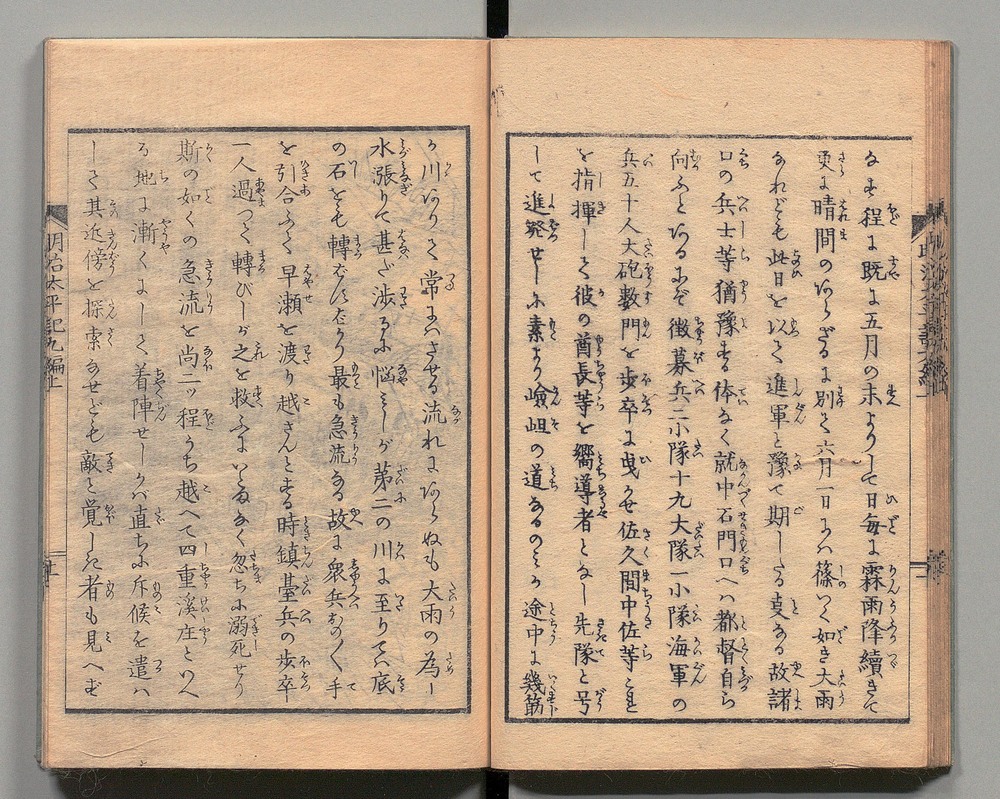 なす程に既に五月の末よりして日毎に霖雨降續きて
更に晴間のあらざるに別て六月一日には篠つく如き大雨
なれども此日を以て進軍と豫て期したる事なる故諸
口の兵士等猶豫する体なく就中石門口へは都督自ら
向ふとあるにぞ徴募兵三小隊十九大隊一小隊海軍の
兵五十人大砲數門を歩卒に曳かせ佐久間中佐等これ
を指揮して彼の酋長等を嚮導者となし先隊と号
して進發せしに素より嶮岨の道なるのミか途中に幾筋
か川ありて常にハさせる流れにあらぬも大雨の為に
水漲りて甚だ渉るに悩ミしが第二の川に至りてハ底
の石をも轉ばすばかり最も急流なる故に衆兵おのおの手
を引合ふて早瀬を渡り越さんとする時鎮臺兵の歩卒
一人過つて轉びしが之を救ふにいとまなく忽ちに溺死せり
斯の如くの急流を尚二ッ程うち越へて四重溪庄といへ
る地に漸くにして着陣せしかバ直ちに斥候を遣ハ
して其近傍を探索なせども敵と覚しき者も見へず
明治太平記九編上